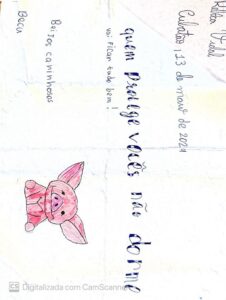 Cubatão, 13 de maio de 2021
quem protege vocês não dorme
vai ficar tudo bem!
Beijos carinhosos
CS Digitalizada com CamScanner